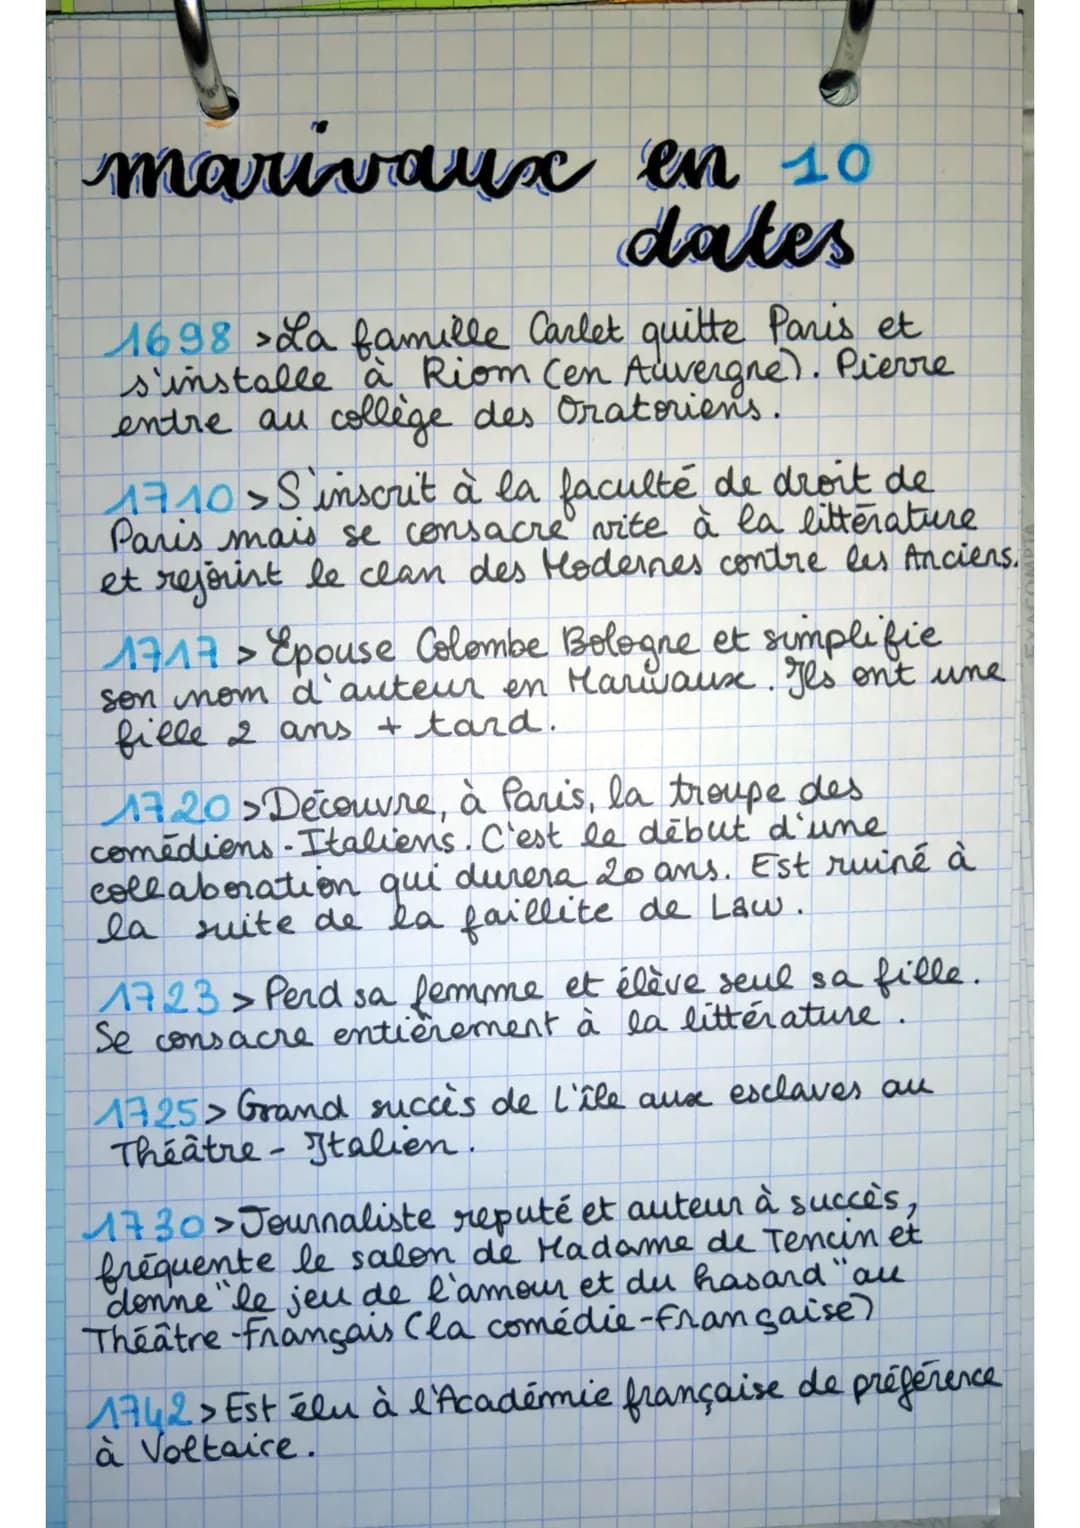 marivaux en 10
dates
1698 > La famille Carlet quitte Paris et
s'installe à Riom (en Auvergne). Pierre
entre au collège des Oratoriens.
1710 > S'inscrit à la faculté de droit de
Paris mais se consacre vite à la littérature
et rejoint le clan des Modernes contre les Anciens.
1717 > Epouse Colombe Bologne et simplifie
son nom d'auteur en Marivaux. Ils ont une
fille 2 ans + tard.
1720 > Découvre, à Paris, la troupe des
comédiens-Italiens. C'est le début d'une
collaboration qui durera 20 ans. Est ruiné à
la suite de la faillite de Law.
1723 > Perd sa femme et élève seul sa fille.
Se consacre entièrement à la littérature.
1725 > Grand succès de l'île aux esclaves au
Théâtre-Italien.
1730 > Journaliste reputé et auteur à succès,
fréquente le salon de Madame de Tencin et
donne "le jeu de l'amour et du hasard" au
Théâtre-Français (la comédie-Française)
1742 > Est élu à l'Académie française de préférence
à Voltaire.
EXACOMPTA